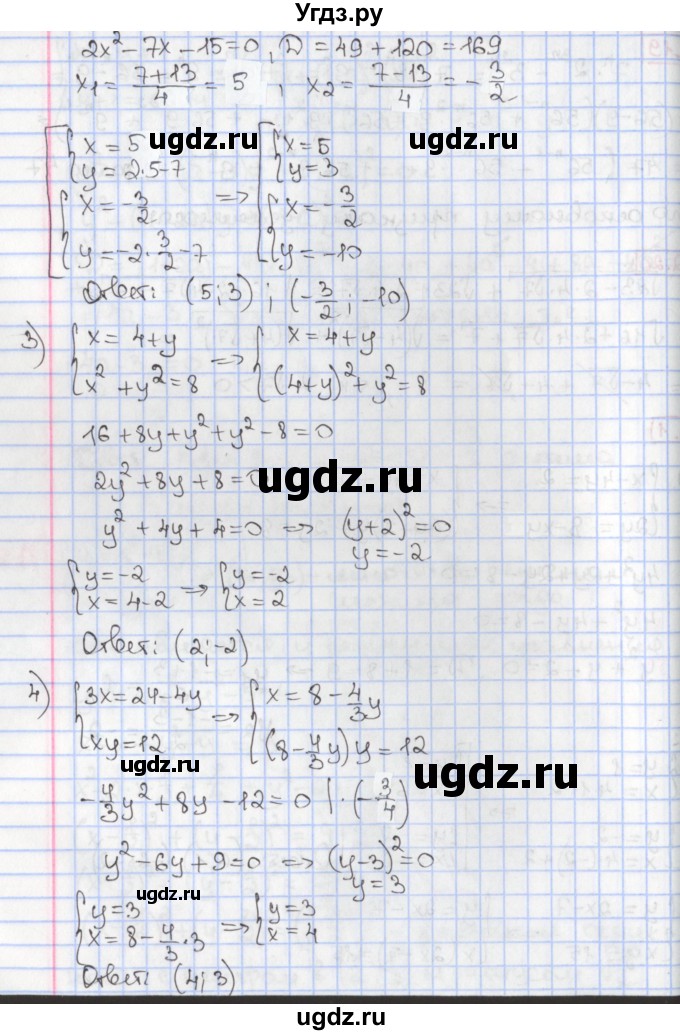 Угдз.ру
2x² - 7x - 15 = 0, D = 49 + 120 = 169
x₁ = (7+13)/4 = 5 ; x₂ = (7-13)/4 = -3/2
[ { x = 5 ; y = 2·5-7 ; { x = -3/2 ; y = -2·3/2 - 7 => [ { x = 5 ; y = 3 ; { x = -3/2 ; y = -10
Ответ: (5; 3) ; (-3/2 ; -10)
3) { x = 4+y ; x² + y² = 8 => { x = 4+y ; (4+y)² + y² = 8
16 + 8y + y² + y² - 8 = 0
2y² + 8y + 8 = 0
y² + 4y + 4 = 0 => (y+2)² = 0
y = -2
{ y = -2 ; x = 4-2 => { y = -2 ; x = 2
Ответ: (2; -2)
4) { 3x = 24-4y ; xy = 12 => { x = 8 - 4/3y ; (8 - 4/3y)y = 12
-4/3y² + 8y - 12 = 0 |·(-3/4)
y² - 6y + 9 = 0 => (y-3)² = 0
y = 3
{ y = 3 ; x = 8 - 4/3·3 => { y = 3 ; x = 4
Ответ: (4; 3)
uдgz.ru